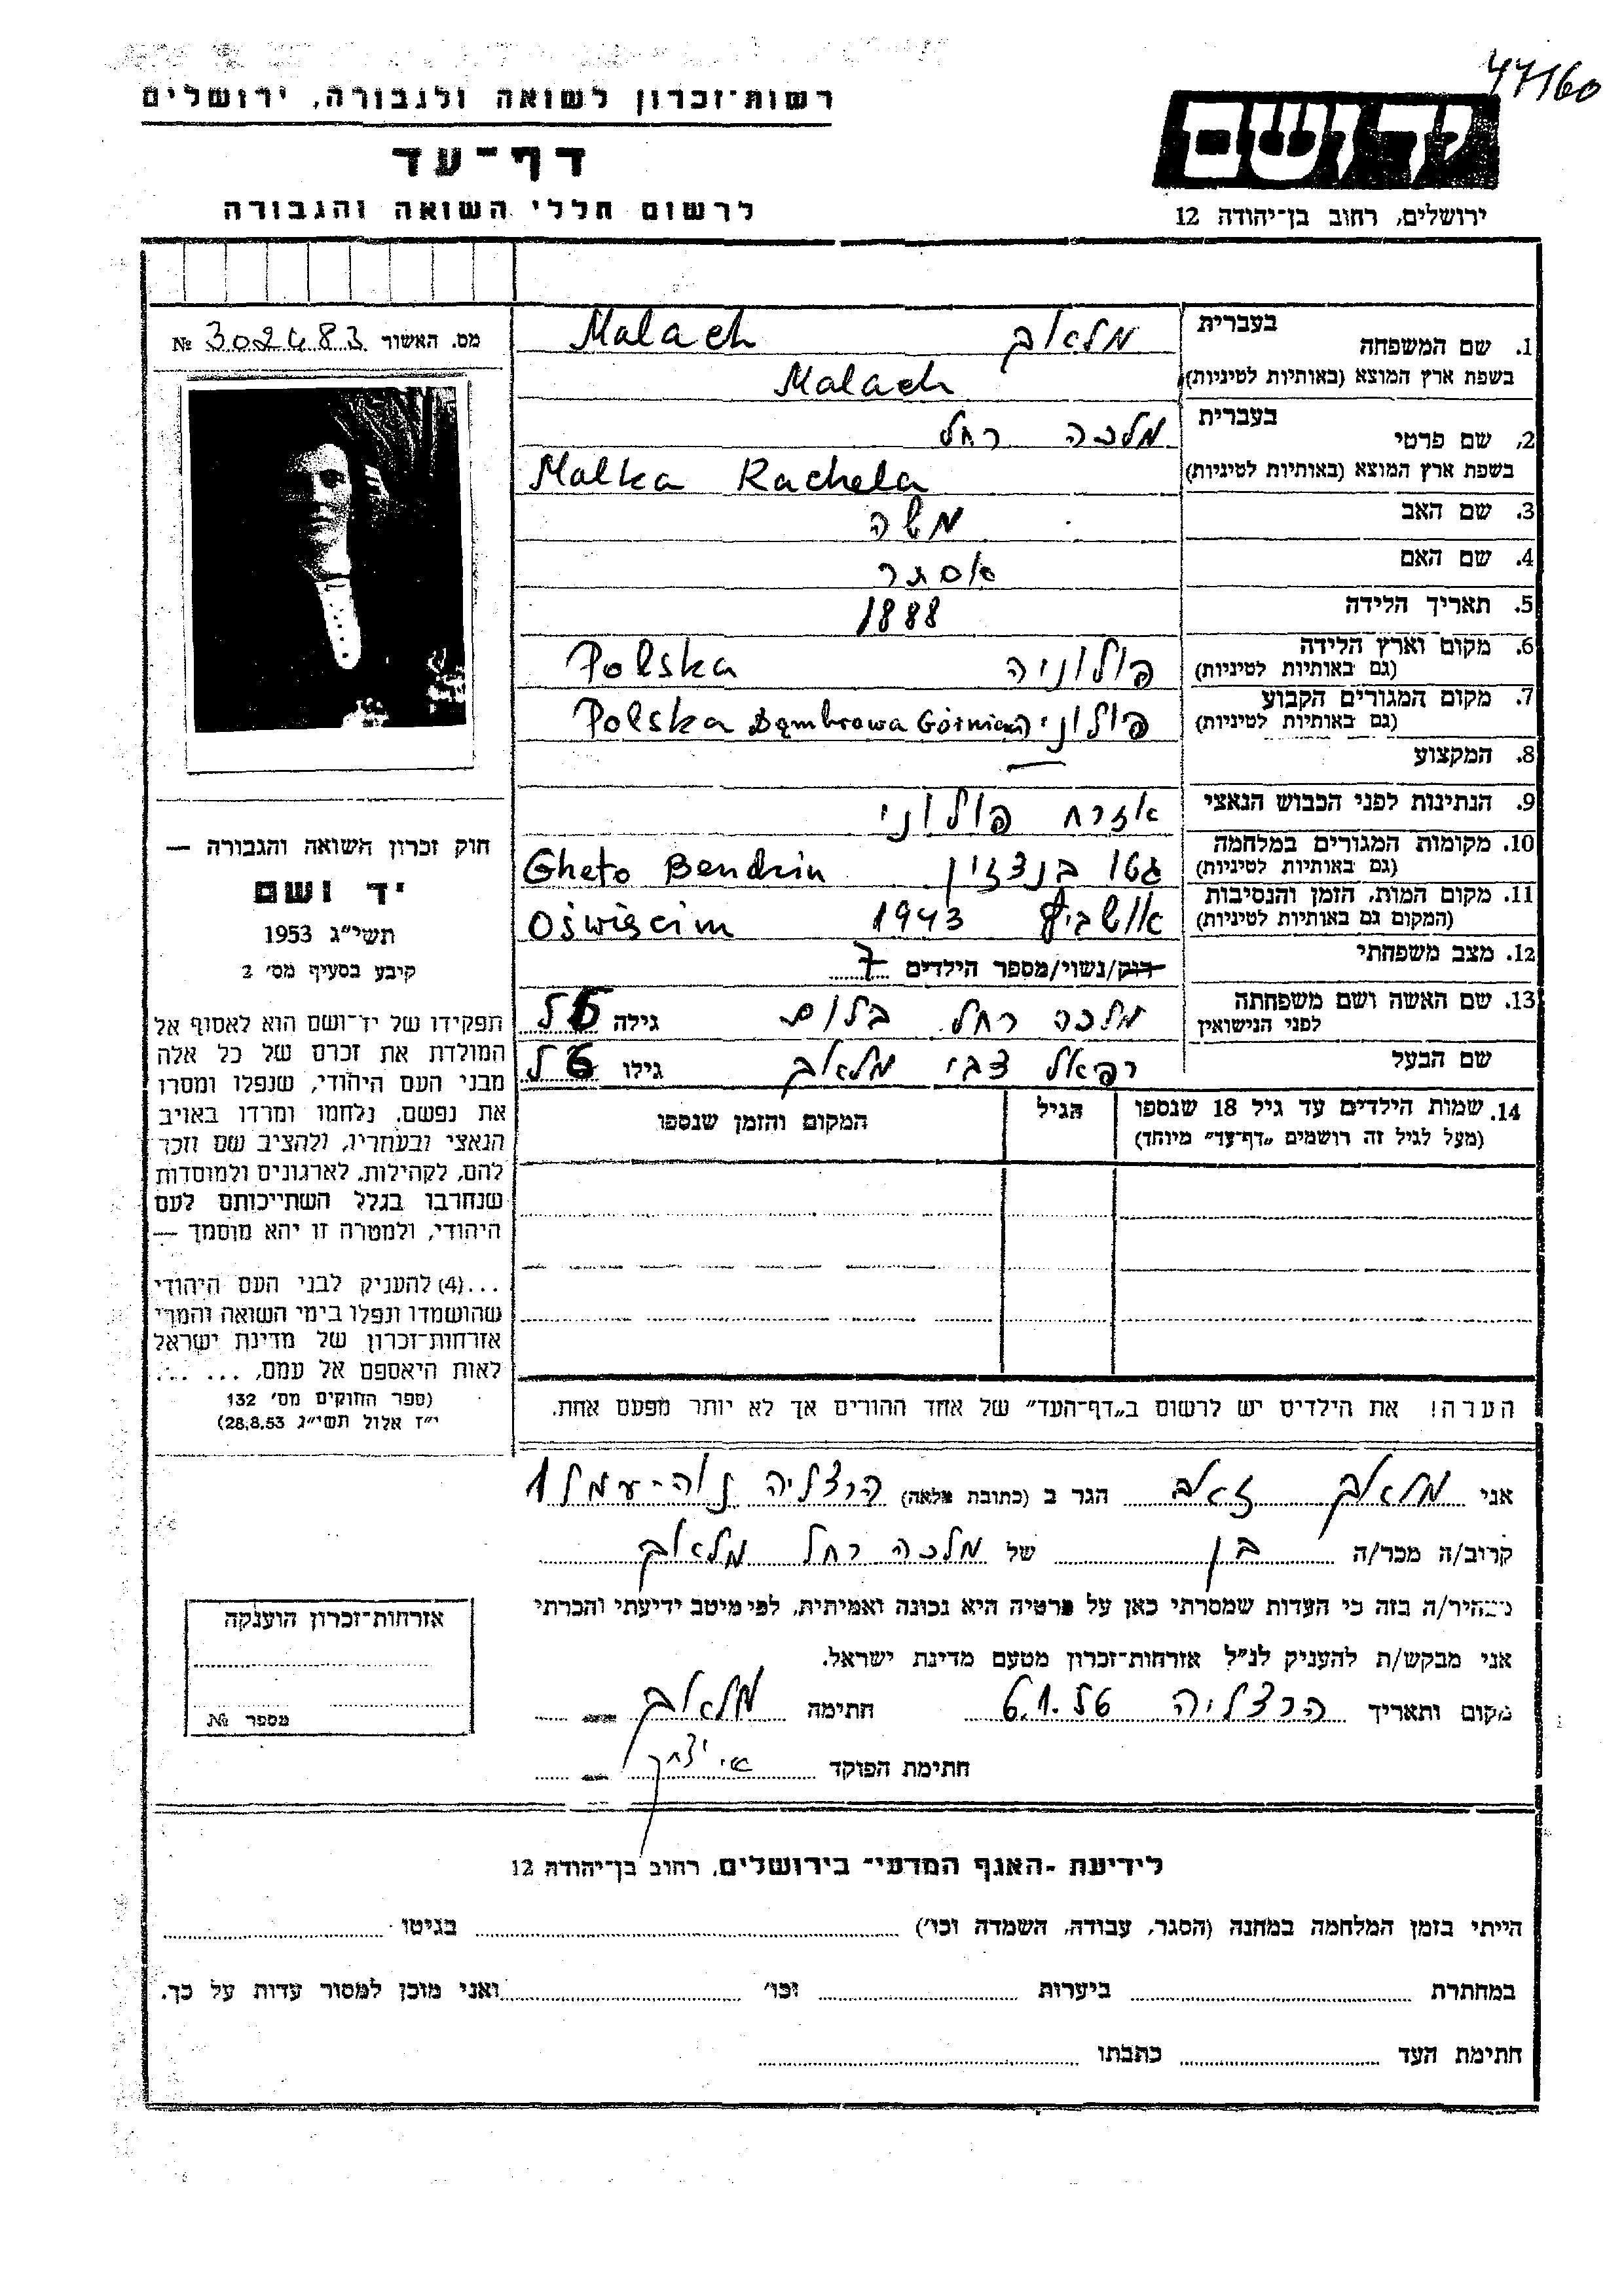 47160
רשות־זכרון לשואה ולגבורה, ירושלים
דף־עד
לרשום חללי השואה והגבורה
ידושם
ירושלים, רחוב בן־יהודה 12
מס. האשור 302483 №
1. שם המשפחה בעברית מלאך Malach
בשפת ארץ המוצא (באותיות לטיניות) Malach
2. שם פרטי בעברית מלכה רחל
בשפת ארץ המוצא (באותיות לטיניות) Malka Rachela
3. שם האב משה
4. שם האם אסתר
5. תאריך הלידה 1888
6. מקום וארץ הלידה (גם באותיות לטיניות) פולוניה Polska
7. מקום המגורים הקבוע (גם באותיות לטיניות) פולוניה Polska Dąmbrowa Górnicza
8. המקצוע —
9. הנתינות לפני הכבוש הנאצי אזרח פולוני
10. מקומות המגורים במלחמה (גם באותיות לטיניות) גטו בנדזין Gheto Bendzin
11. מקום המות, הזמן והנסיבות (המקום גם באותיות לטיניות) אושביץ 1943 Oświęcim
12. מצב משפחתי רוק/נשוי/מספר הילדים 7
13. שם האשה ושם משפחתה לפני הנישואין מלכה רחל בלום גילה
שם הבעל רפאל צבי מלאך גילו
14. שמות הילדים עד גיל 18 שנספו הגיל המקום והזמן שנספו
(מעל לגיל זה רושמים „דף־עד״ מיוחד)
הערה! את הילדים יש לרשום ב„דף־העד״ של אחד ההורים אך לא יותר מפעם אחת.
חוק זכרון השואה והגבורה —
יד ושם
תשי״ג 1953
קיבע בסעיף מס׳ 2
תפקידו של יד־ושם הוא לאסוף אל
המולדת את זכרם של כל אלה
מבני העם היהודי, שנפלו ומסרו
את נפשם, נלחמו ומרדו באויב
הנאצי ובעוזריו, ולהציב שם וזכר
להם, לקהילות, לארגונים ולמוסדות
שנחרבו בגלל השתייכותם לעם
היהודי, ולמטרה זו יהא מוסמך —
...(4) להעניק לבני העם היהודי
שהושמדו ונפלו בימי השואה והמרי
אזרחות־זכרון של מדינת ישראל
לאות היאספם אל עמם, ... ...
(ספר החוקים מס׳ 132
י״ז אלול תשי״ג 28.8.53)
אני מלאך זאב הגר ב (כתובת מלאה) הרצליה נוה־עמל 1
קרוב/ה מכר/ה בן של מלכה רחל מלאך
מצהיר/ה בזה כי העדות שמסרתי כאן על פרטיה היא נכונה ואמיתית, לפי מיטב ידיעתי והכרתי
אני מבקש/ת להעניק לנ״ל אזרחות־זכרון מטעם מדינת ישראל.
מקום ותאריך הרצליה 6.1.56 חתימה מלאך
חתימת הפוקד
אזרחות־זכרון הוענקה
מספר №
לידיעת ־האגף המדעי־ בירושלים, רחוב בן־יהודה 12
הייתי בזמן המלחמה במחנה (הסגר, עבודה, השמדה וכו׳) בגיטו
במחתרת ביערות וכו׳ ואני מוכן למסור עדות על כך.
חתימת העד כתבתו